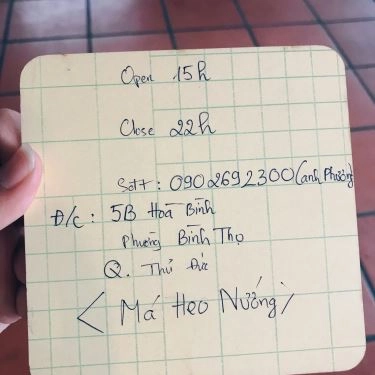 Open 15h
Close 22h
Sđt : 0902692300 (anh Phương)
Đ/c : 5B Hoà Bình
phường Bình Thọ
Q. Thủ Đức
< Má Heo Nướng >